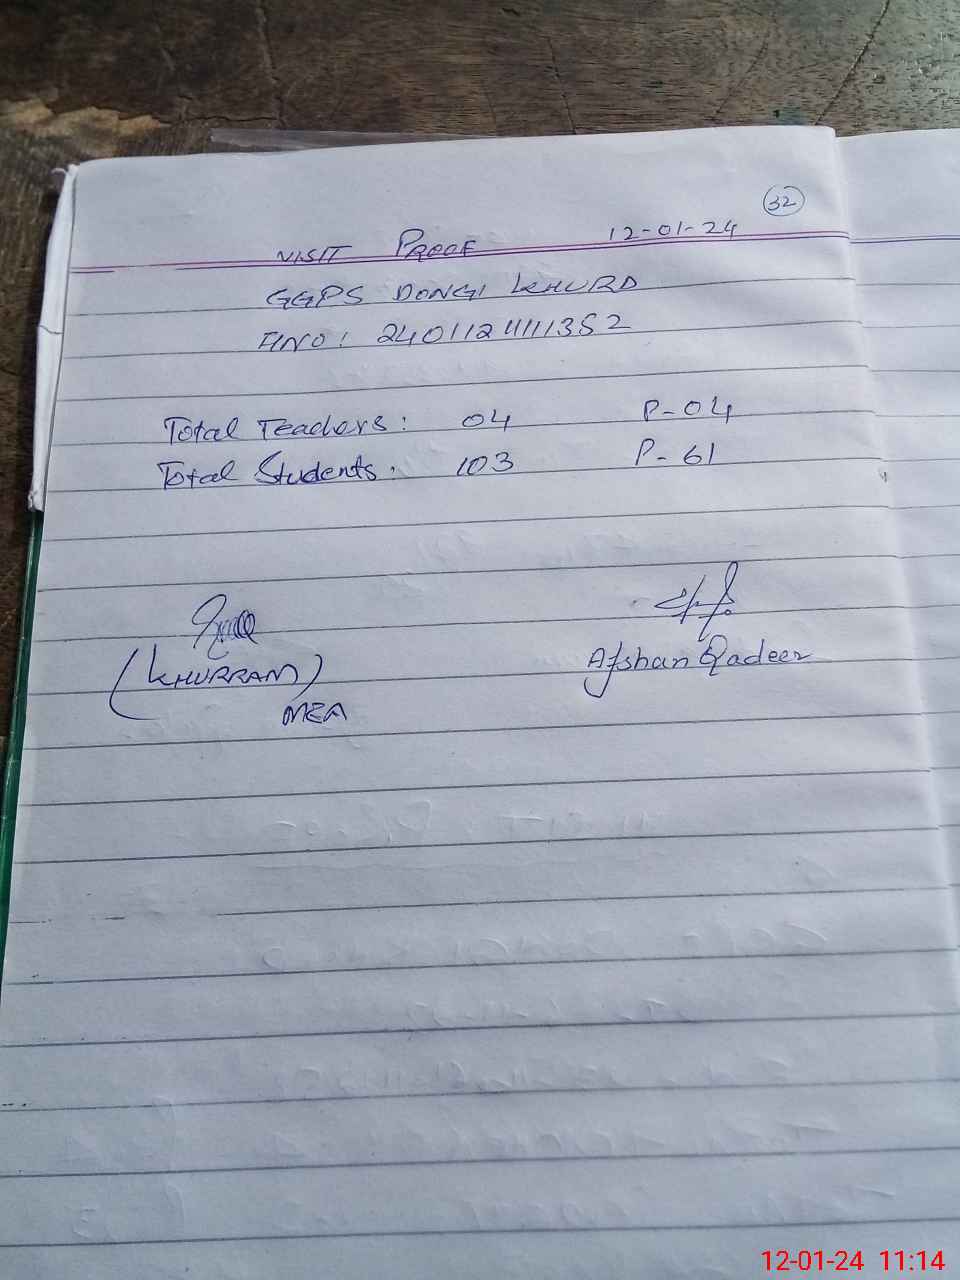 32
VISIT PROOF 12-01-24
GGPS DONGI KHURD
A.NO: 2401124111352
Total Teachers: 04 P-04
Total Students: 103 P-61
(KHURRAM)
MEA
Afshan Qadeer
12-01-24 11:14